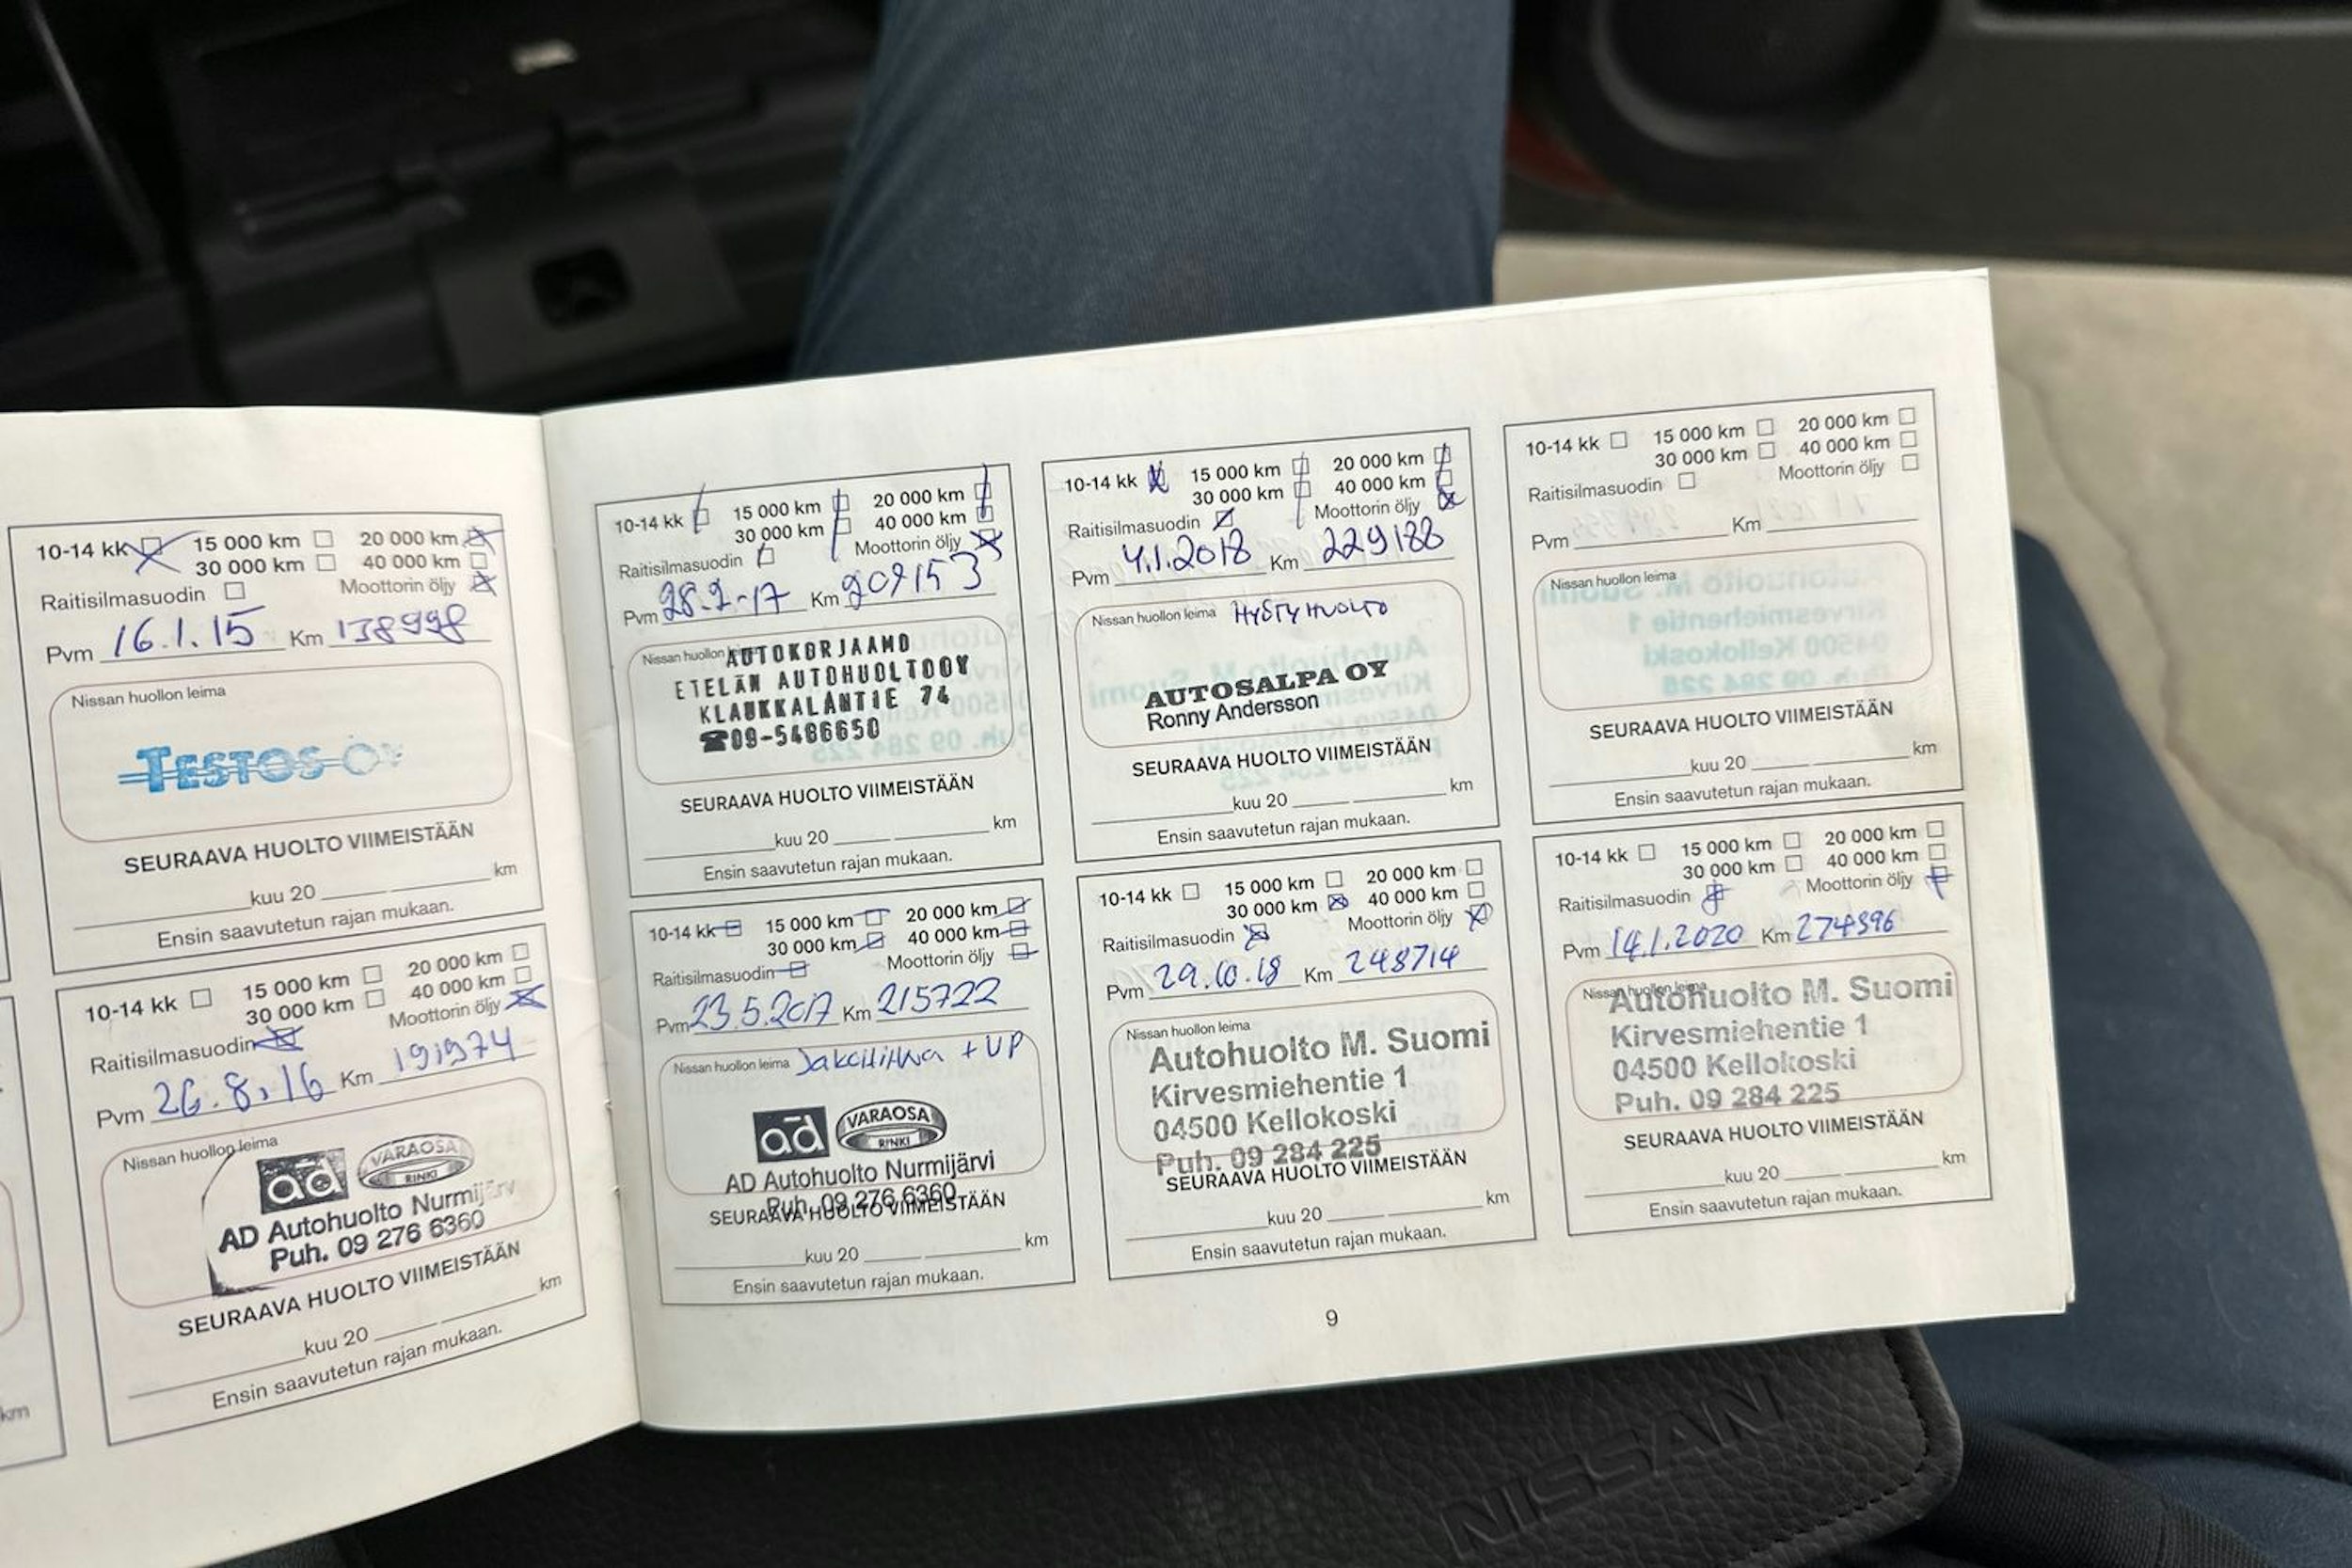 10-14 kk 15 000 km 20 000 km
30 000 km 40 000 km
Raitisilmasuodin Moottorin öljy
Pvm 16.1.15 Km 138998
Nissan huollon leima
TESTOS OY
SEURAAVA HUOLTO VIIMEISTÄÄN
kuu 20 km
Ensin saavutetun rajan mukaan.
10-14 kk 15 000 km 20 000 km
30 000 km 40 000 km
Raitisilmasuodin Moottorin öljy
Pvm 26.8.16 Km 191974
Nissan huollon leima
ad VARAOSA RINKI
AD Autohuolto Nurmijärv
Puh. 09 276 6360
SEURAAVA HUOLTO VIIMEISTÄÄN
kuu 20 km
Ensin saavutetun rajan mukaan.
km
10-14 kk 15 000 km 20 000 km
30 000 km 40 000 km
Raitisilmasuodin Moottorin öljy
Pvm 28.2-17 Km 209153
Nissan huollon leima
AUTOKORJAAMO
ETELÄN AUTOHUOLTO OY
KLAUKKALANTIE 74
☎09-5486650
SEURAAVA HUOLTO VIIMEISTÄÄN
kuu 20 km
Ensin saavutetun rajan mukaan.
10-14 kk 15 000 km 20 000 km
30 000 km 40 000 km
Raitisilmasuodin Moottorin öljy
Pvm 23.5.2017 Km 215722
Nissan huollon leima Jakohihna + VP
ad VARAOSA RINKI
AD Autohuolto Nurmijärvi
Puh. 09 276 6360
SEURAAVA HUOLTO VIIMEISTÄÄN
kuu 20 km
Ensin saavutetun rajan mukaan.
10-14 kk 15 000 km 20 000 km
30 000 km 40 000 km
Raitisilmasuodin Moottorin öljy
Pvm 4.1.2018 Km 229188
Nissan huollon leima HYSTY HUOLTO
AUTOSALPA OY
Ronny Andersson
SEURAAVA HUOLTO VIIMEISTÄÄN
kuu 20 km
Ensin saavutetun rajan mukaan.
10-14 kk 15 000 km 20 000 km
30 000 km 40 000 km
Raitisilmasuodin Moottorin öljy
Pvm 29.10.18 Km 248714
Nissan huollon leima
Autohuolto M. Suomi
Kirvesmiehentie 1
04500 Kellokoski
Puh. 09 284 225
SEURAAVA HUOLTO VIIMEISTÄÄN
kuu 20 km
Ensin saavutetun rajan mukaan.
10-14 kk 15 000 km 20 000 km
30 000 km 40 000 km
Raitisilmasuodin Moottorin öljy
Pvm Km
Nissan huollon leima
SEURAAVA HUOLTO VIIMEISTÄÄN
kuu 20 km
Ensin saavutetun rajan mukaan.
10-14 kk 15 000 km 20 000 km
30 000 km 40 000 km
Raitisilmasuodin Moottorin öljy
Pvm 14.1.2020 Km 274896
Nissan huollon leima
Autohuolto M. Suomi
Kirvesmiehentie 1
04500 Kellokoski
Puh. 09 284 225
SEURAAVA HUOLTO VIIMEISTÄÄN
kuu 20 km
Ensin saavutetun rajan mukaan.
9
NISSAN